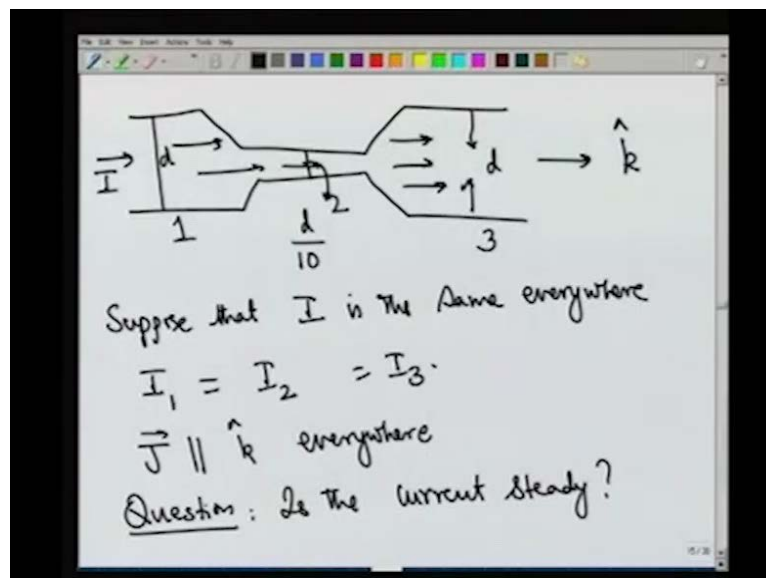 File Edit View Insert Actions Tools Help
I d 1 2 d/10 d 3 k̂
Suppse that I is the same everywhere
I₁ = I₂ = I₃.
J⃗ || k̂ everywhere
Question: Is the current steady?
15/20